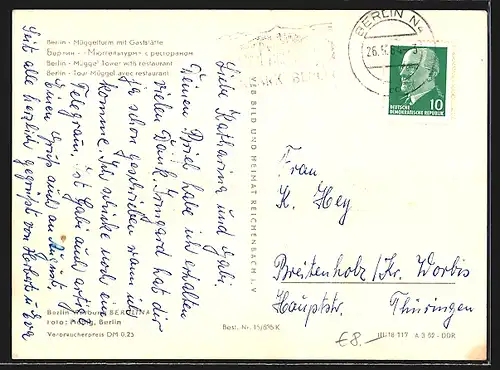 Berlin - Müggelturm mit Gaststätte
Берлин - «Мюггельтурм» с рестораном
Berlin - Müggel Tower with restaurant
Berlin - Tour Müggel avec restaurant
Liebe Katharina und Gabi
Deinen Brief habe ich erhalten
vielen Dank. Irmgard hat dir
ja schon geschrieben wann ich
komme. Ich schicke noch ein
Telegram, ist Gabi auch artig
Einen Gruß auch an
Seit alle herzlich gegrüßt von Herbert u. Eva
VEB BILD UND HEIMAT REICHENBACH I. V.
BERLIN N4
DEUTSCHE
DEMOKRATISCHE REPUBLIK
10
Frau
K. Hey
Breitenholz/Kr. Worbis
Hauptstr.
Thüringen
Berlin BEROLINA
Foto: Berlin
Verbraucherpreis DM 0,25
Best. Nr.
€8.–
III-18-117 A 3 DDR